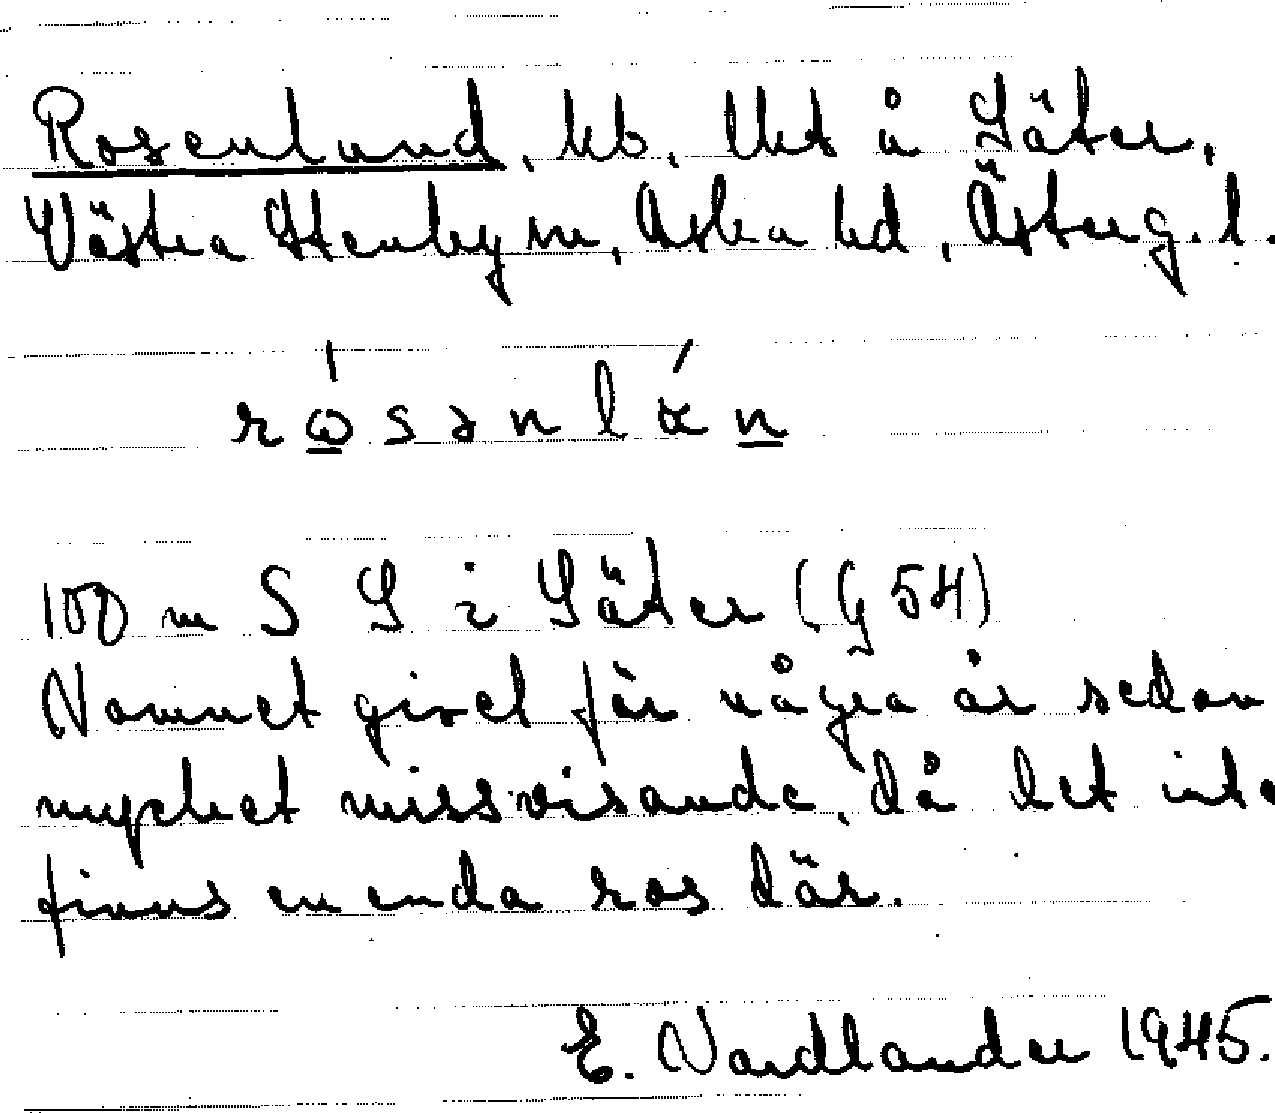 Rosenlund, kb. lht å Säter,
Västra Stenby sn, Aska hd, Österg. l.
rωsənlán
100 m S G i Säter (G 54)
Namnet givet för några år sedan
mycket missvisande, då det inte
finns en enda ros där.
E. Nordlander 1945.